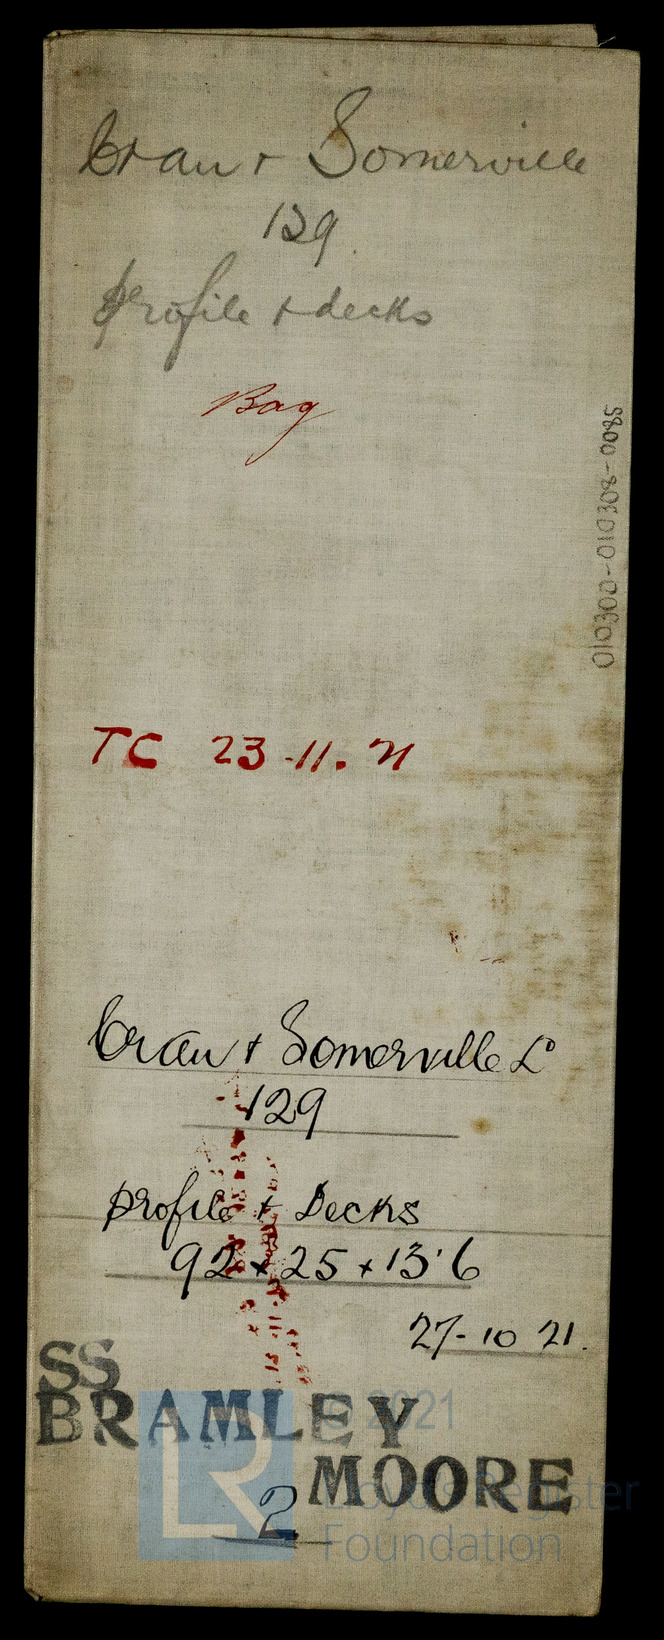 Cran + Somerville
129.
profile + decks
Bag
010300-010308-0085
TC 23-11. 21
Cran + Somerville Lᵈ
129
profile + Decks
92 x 25 x 13'6
27-10 21.
SS
BRAMLEY
MOORE
2
© 2021
Lloyd's Register
Foundation
LR